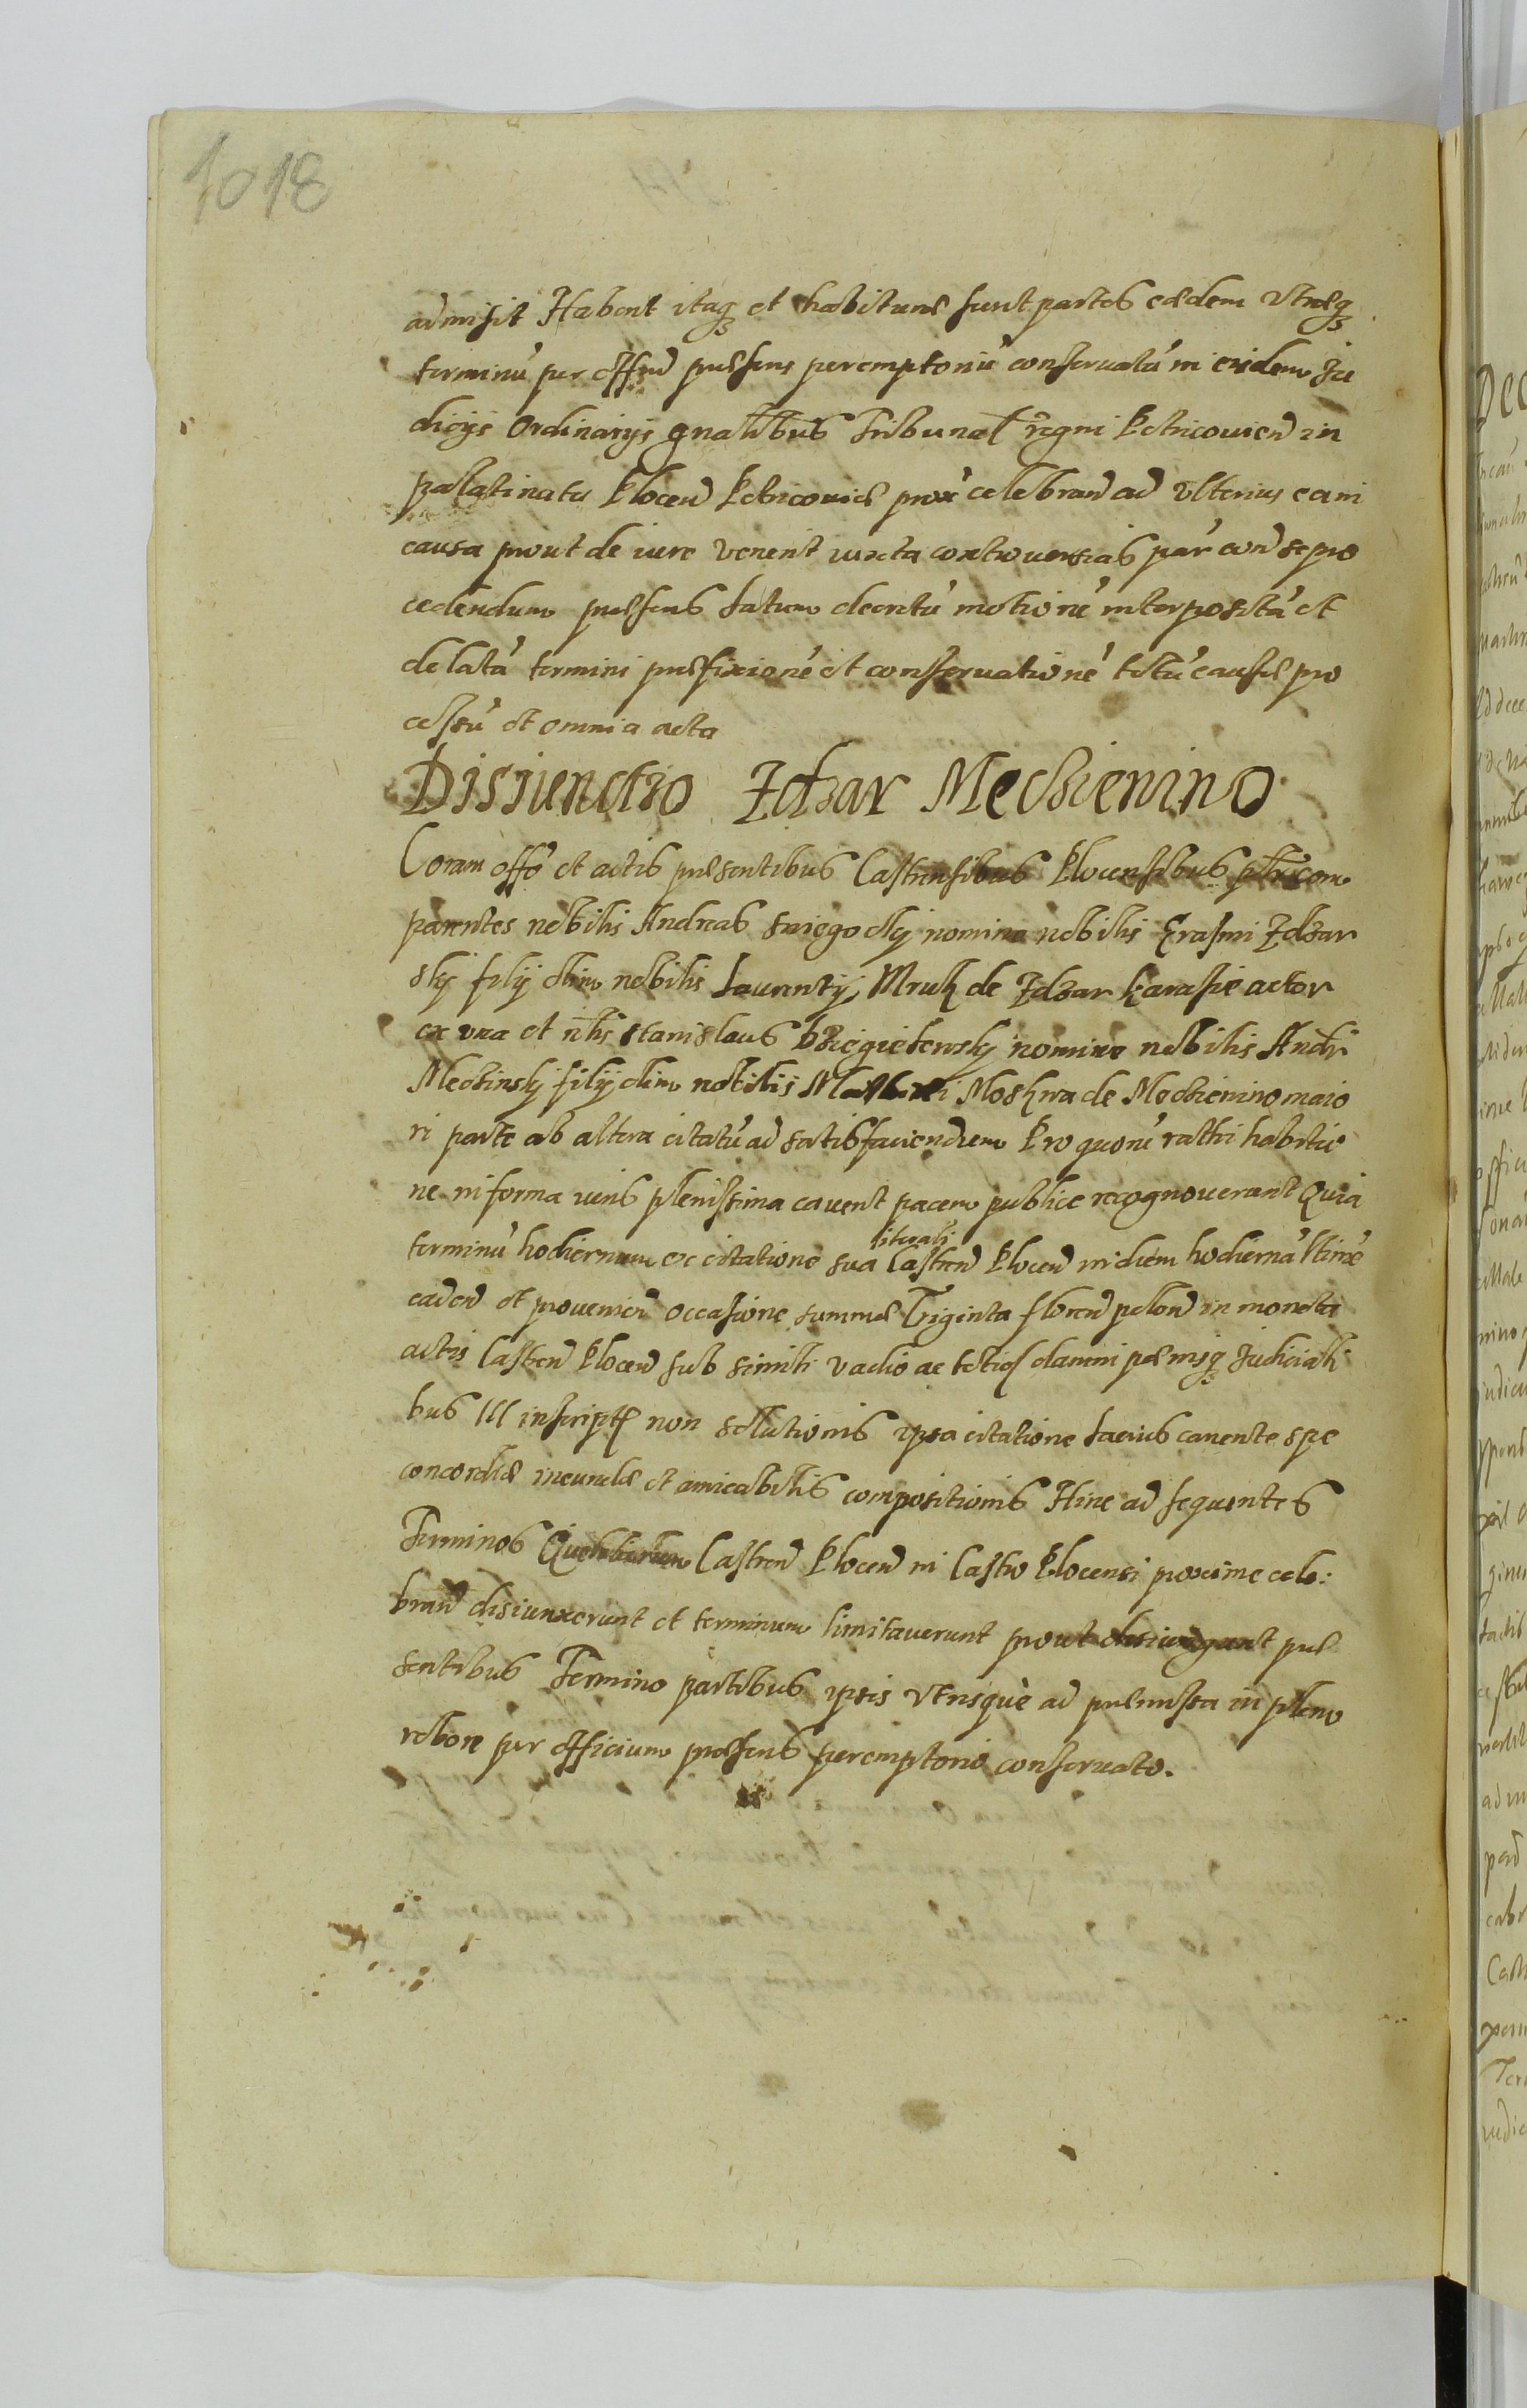 1018
admisit Habent itaq et habituræ sunt partes eædem Utræq
terminū per offm̄ præsens peremptoriū conseruatū in eisdem Ju
dicijs Ordinarijs gnalibus Tribunal regni Petricouien in
palatinatu Plocen Petricouiæ prox celebran ad ulterius ea in
causa prout de iure venerit iuxta controuersias par eond se pro
cedendum præsens latum decretū motionē interpositā et
delatā termini præfixionē et conseruationē totū causæ pro
cessū et omnia acta
Disiunctio Idzar Mechienino
Coram offo et actis præsentibus Castrensibus Plocensibus com
parentes nobilis Andreas nomine nobilis Erasmi Idzar
sky filij olim nobilis Laurentij Mruk de Idzar Karasie actor
ex una et nlis Stanislaus nomine nobilis Andr
Mechinsky filij olim nobilis Moskwa de Mechienino maio
ri parte ab altera citatū ad satisfaciendum Pro quorū rathi habitio
ne in forma iuris plenissima cavent pacem publice recognoverunt Quia
literali
terminū hodiernum ex citatione sua Castren Plocen in diem hodiernā
caden et provenien occasione summæ Triginta floren polon in moneta
actis Castren Plocen sub simili vadio ac damni pœnisq Judiciali
bus Ill inscript non solutionis ipsa citatione latius canente spe
concordiæ ineundæ et amicabilis compositionis Hinc ad sequentes
Terminos Castren Plocen in Castro Plocensi proxime cele:
bran disiunxerunt et terminum limitaverunt prout disiungunt præ
sentibus Termino partibus ipsis utrisque ad præmissa in pleno
robore per officium præsens peremptorio conseruato.